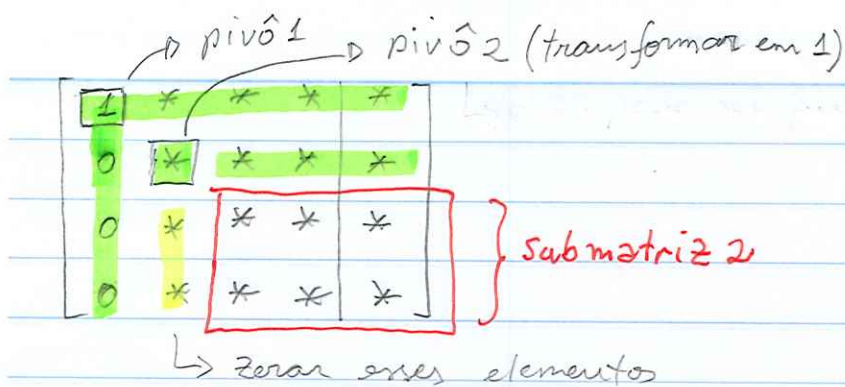 pivô 1
pivô 2 (transformar em 1)
1 * * * *
0 * * * *
0 * * * *
0 * * * *
submatriz 2
zerar esses elementos